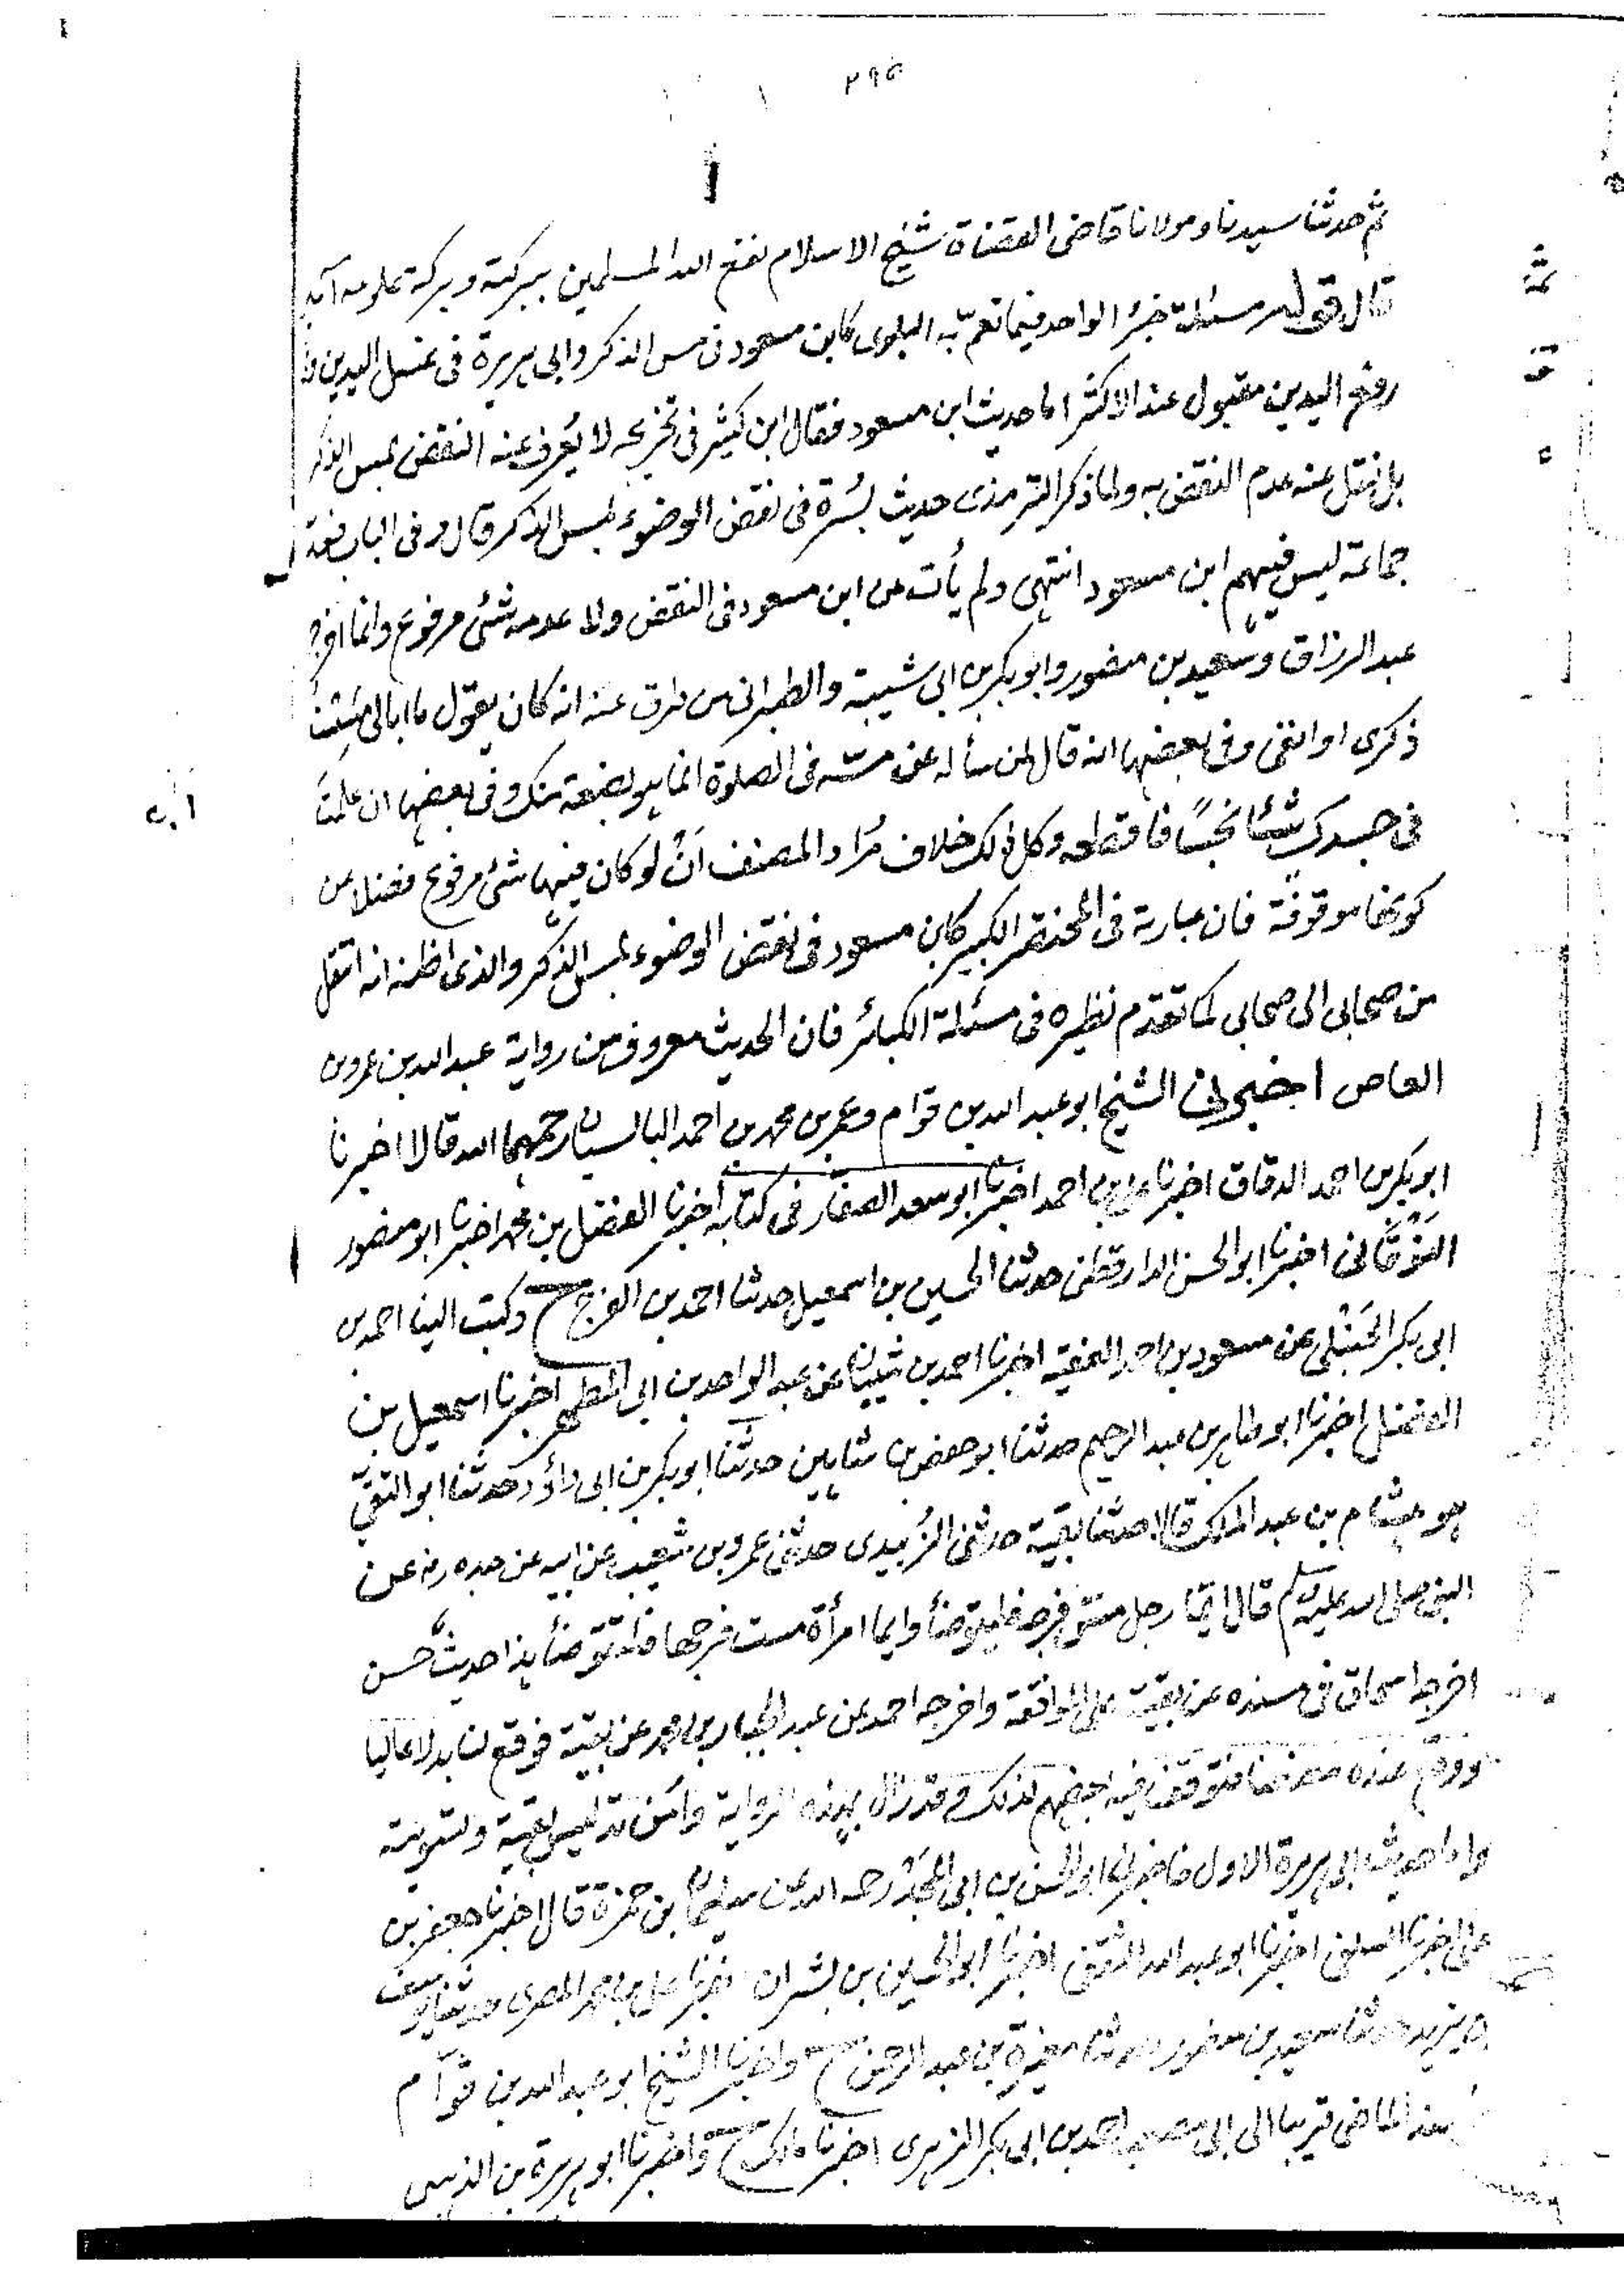 ٢٩٥
ثم حدثنا سيدنا ومولانا قاضى القضاة شيخ الاسلام نفع الله المسلمين ببركته وبركة علومه آمين
قال قوله مسئلة خبر الواحد فيما تعم به البلوى كابن مسعود فى مس الذكر وابى هريرة فى غسل اليدين و
رفع اليدين مقبول عند الاكثر اما حديث ابن مسعود فقال ابن كثير فى تخريجه لا يُعرف عنه النقض بمس الذكر
بل نقل عنه عدم النقض به ولما ذكر الترمذى حديث بُسْرة فى نقض الوضوء بمس الذكر قال وفى الباب فعد
جماعة ليس فيهم ابن مسعود انتهى ولم يأت عن ابن مسعود فى النقض ولا عدمه شئ مرفوع وانما اخرج
عبد الرزاق وسعيد بن منصور وابو بكر بن ابى شيبة والطبرانى من طرق عنه انه كان يقول ما ابالى مَسِسْتُ
ذكرى او انفى وفى بعضها انه قال لمن سأله عن مسّه فى الصلوة انما هو بضعة منك وفى بعضها ان علمتَ
فى جسدك شيئًا نجسًا فاقطعه وكل ذلك خلاف مُراد المصنف اَنْ لو كان فيها شئ مرفوع فضلا عن
كونها موقوفة فان عبارته فى المختصر الكبير كابن مسعود فى نقض الوضوء بمس الذكر والذى اظنه انه انتقل
من صحابى الى صحابى كما تقدّم نظيره فى مسئلة الكبائر فان الحديث معروف من رواية عبد الله بن عمرو بن
العاص اخبرنى الشيخ ابو عبد الله بن قوام وعمر بن محمد بن احمد البالسيان رحمهما الله قالا اخبرنا
ابو بكر بن احمد الدقاق اخبرنا على بن احمد اخبرنا ابو سعد الصفار فى كتابه اخبرنا الفضل بن محمد اخبرنا ابو منصور
النَوْقَانى اخبرنا ابو الحسن الدارقطنى حدثنا الحسين بن اسمعيل حدثنا احمد بن الفرج ح وكتب الينا احمد بن
ابى بكر الحنبلى عن مسعود بن احمد الفقيه اخبرنا احمد بن شيبان عن عبد الواحد بن ابى المطهر اخبرنا اسمعيل بن
الفضل اخبرنا ابو طاهر بن عبد الرحيم حدثنا ابو حفص بن شاهين حدثنا ابو بكر بن ابى داؤد حدثنا ابو التقىّ
هو هشام بن عبد الملك قالا حدثنا بقيّة حدثنى الزُبيدى حدثنى عمرو بن شعيب عن ابيه عن جده رضى عن
النبى صلى الله عليه وسلم قال ايّما رجل مسّ فرجه فليتوضأ وايما امرأة مست فرجها فلتتوضأ هذا حديث حسن
اخرجه اسحاق فى مسنده عن بقيّة على الموافقة واخرجه احمد عن عبد الجبار بن محمد عن بقيّة فوقع لنا بدلا عاليا
ووقع عنده معنعنا فتوقف فيه بعضهم لذلك وقد زال بهذه الرواية وامن تدليس بقية وتسويته
واما حديث ابى هريرة الاول فاخبرنى ابو الحسن بن ابى المَجْد رحمه الله عن سليمان بن حمزة قال اخبرنا جعفر بن
على اخبرنا السلفى اخبرنا ابو عبد الله الثقفى اخبرنا ابو الحسين بن بشران اخبرنا على بن محمد المصرى حدثنا يوسف
بن يزيد حدثنا سعيد بن منصور حدثنا مغيرة بن عبد الرحمن ح واخبرنا الشيخ ابو عبد الله بن قوّام
بسنده الماضى قريبا الى ابى مصعب احمد بن ابى بكر الزهرى اخبرنا مالك ح واخبرنا ابو هريرة بن الذهبى